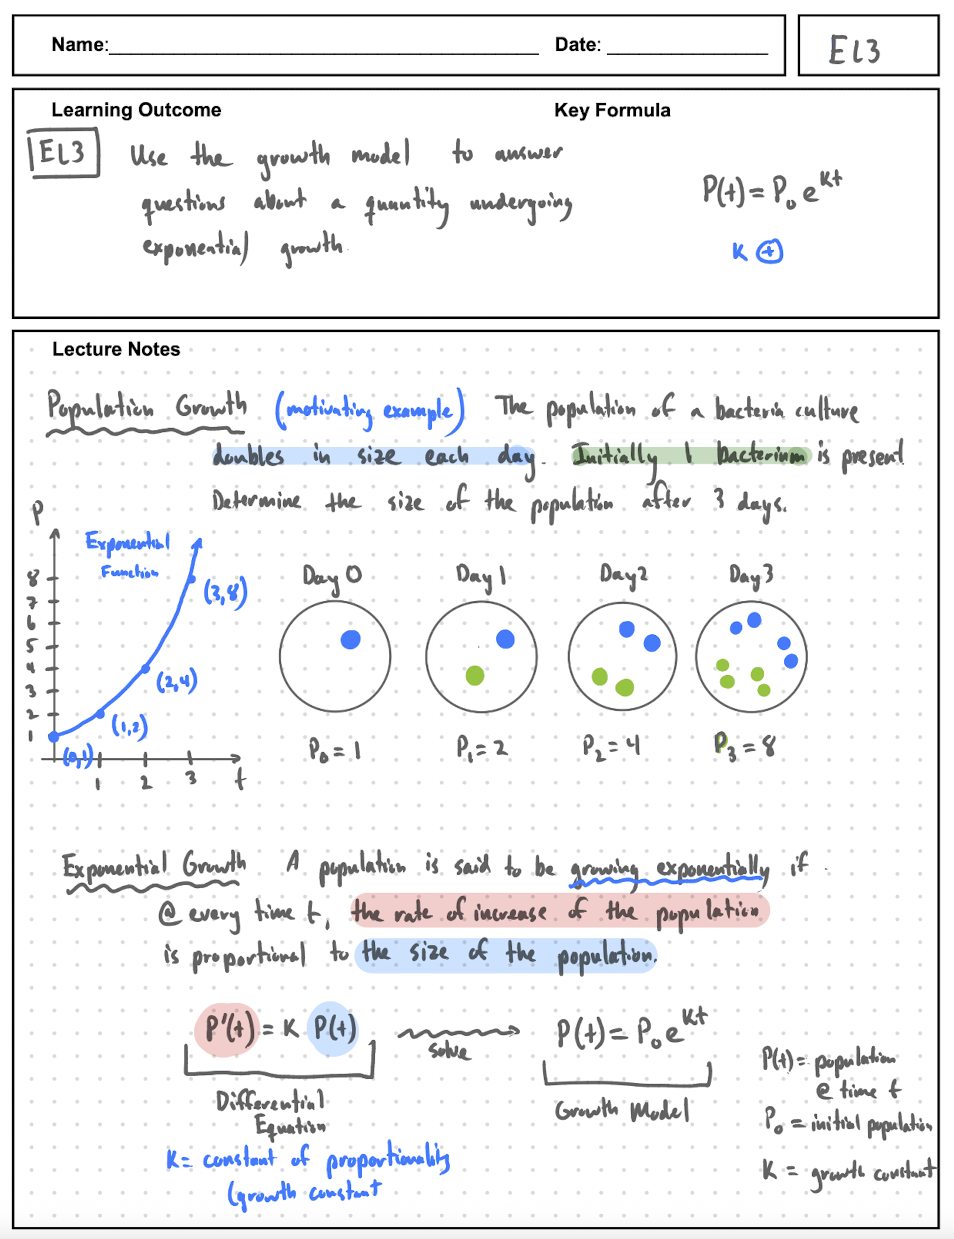 Name: Date: EL3
Learning Outcome Key Formula
EL3 Use the growth model to answer
questions about a quantity undergoing
exponential growth.
P(t) = P₀ e^kt
K (+)
Lecture Notes
Population Growth (motivating example) The population of a bacteria culture
doubles in size each day. Initially 1 bacterium is present.
Determine the size of the population after 3 days.
P
Exponential
Function
8
7
6
5
4
3
2
1
(3,8)
(2,4)
(1,2)
(0,1)
1 2 3 t
Day 0 Day 1 Day 2 Day 3
P₀ = 1 P₁ = 2 P₂ = 4 P₃ = 8
Exponential Growth A population is said to be growing exponentially if
@ every time t, the rate of increase of the population
is proportional to the size of the population.
P'(t) = K P(t) solve P(t) = P₀ e^kt
Differential
Equation
Growth Model
K = constant of proportionality
(growth constant
P(t) = population
@ time t
P₀ = initial population
K = growth constant